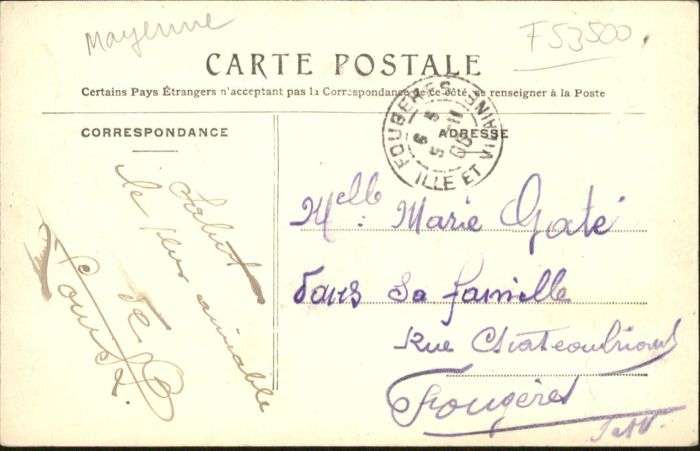 Mayenne
F53500
CARTE POSTALE
Certains Pays Étrangers n'acceptant pas la Correspondance de ce côté, se renseigner à la Poste
CORRESPONDANCE
ADRESSE
FOUGERES
ILLE ET VILAINE
Salut
le plus aimable
Melle Marie Gaté
Dans Sa famille
Rue Chateaubriand
Fougères